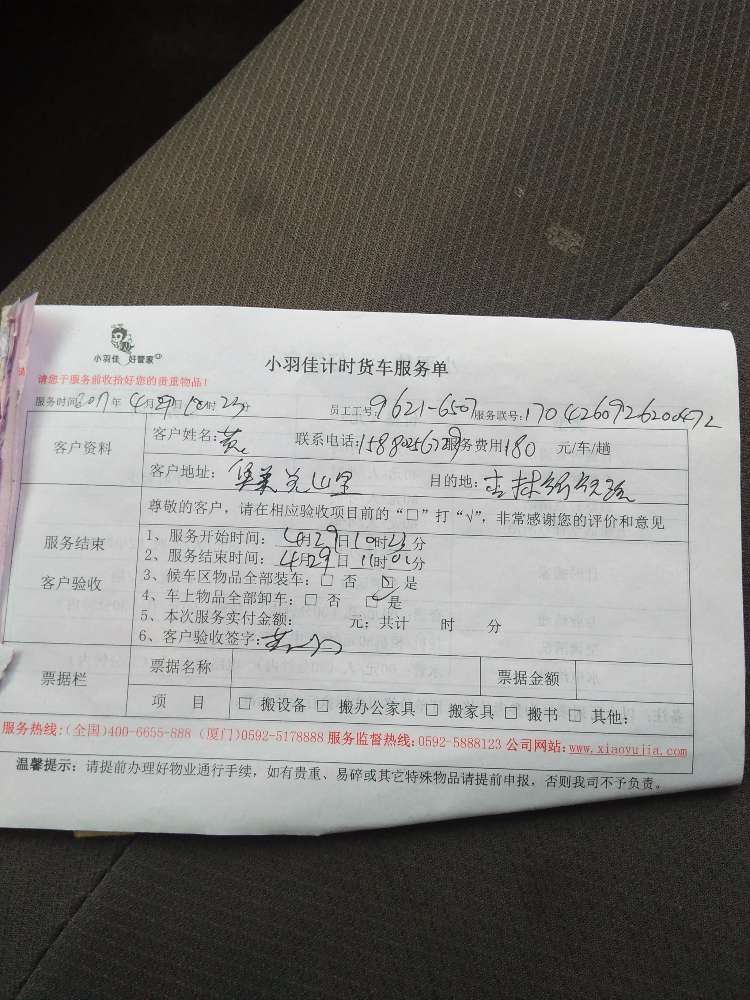 小羽佳 好管家
小羽佳计时货车服务单
请您于服务前收拾好您的贵重物品!
服务时间2017年4月29日10时23分 员工工号:9621-6507服务联号:1704260926200472
客户资料
客户姓名:黄 联系电话:15880256729服务费用180 元/车/趟
客户地址: 山里 目的地:
服务结束
客户验收
尊敬的客户,请在相应验收项目前的“□”打“√”,非常感谢您的评价和意见
1、服务开始时间:4月29日10时23分
2、服务结束时间:4月29日11时01分
3、候车区物品全部装车:□ 否 □ 是
4、车上物品全部卸车:□ 否 □ 是
5、本次服务实付金额: 元;共计 时 分
6、客户验收签字:黄
票据栏
票据名称 票据金额
项 目 □ 搬设备 □ 搬办公家具 □ 搬家具 □ 搬书 □ 其他:
服务热线:(全国)400-6655-888 (厦门)0592-5178888 服务监督热线:0592-5888123 公司网站:www.xiaoyujia.com
温馨提示:请提前办理好物业通行手续,如有贵重、易碎或其它特殊物品请提前申报,否则我司不予负责。